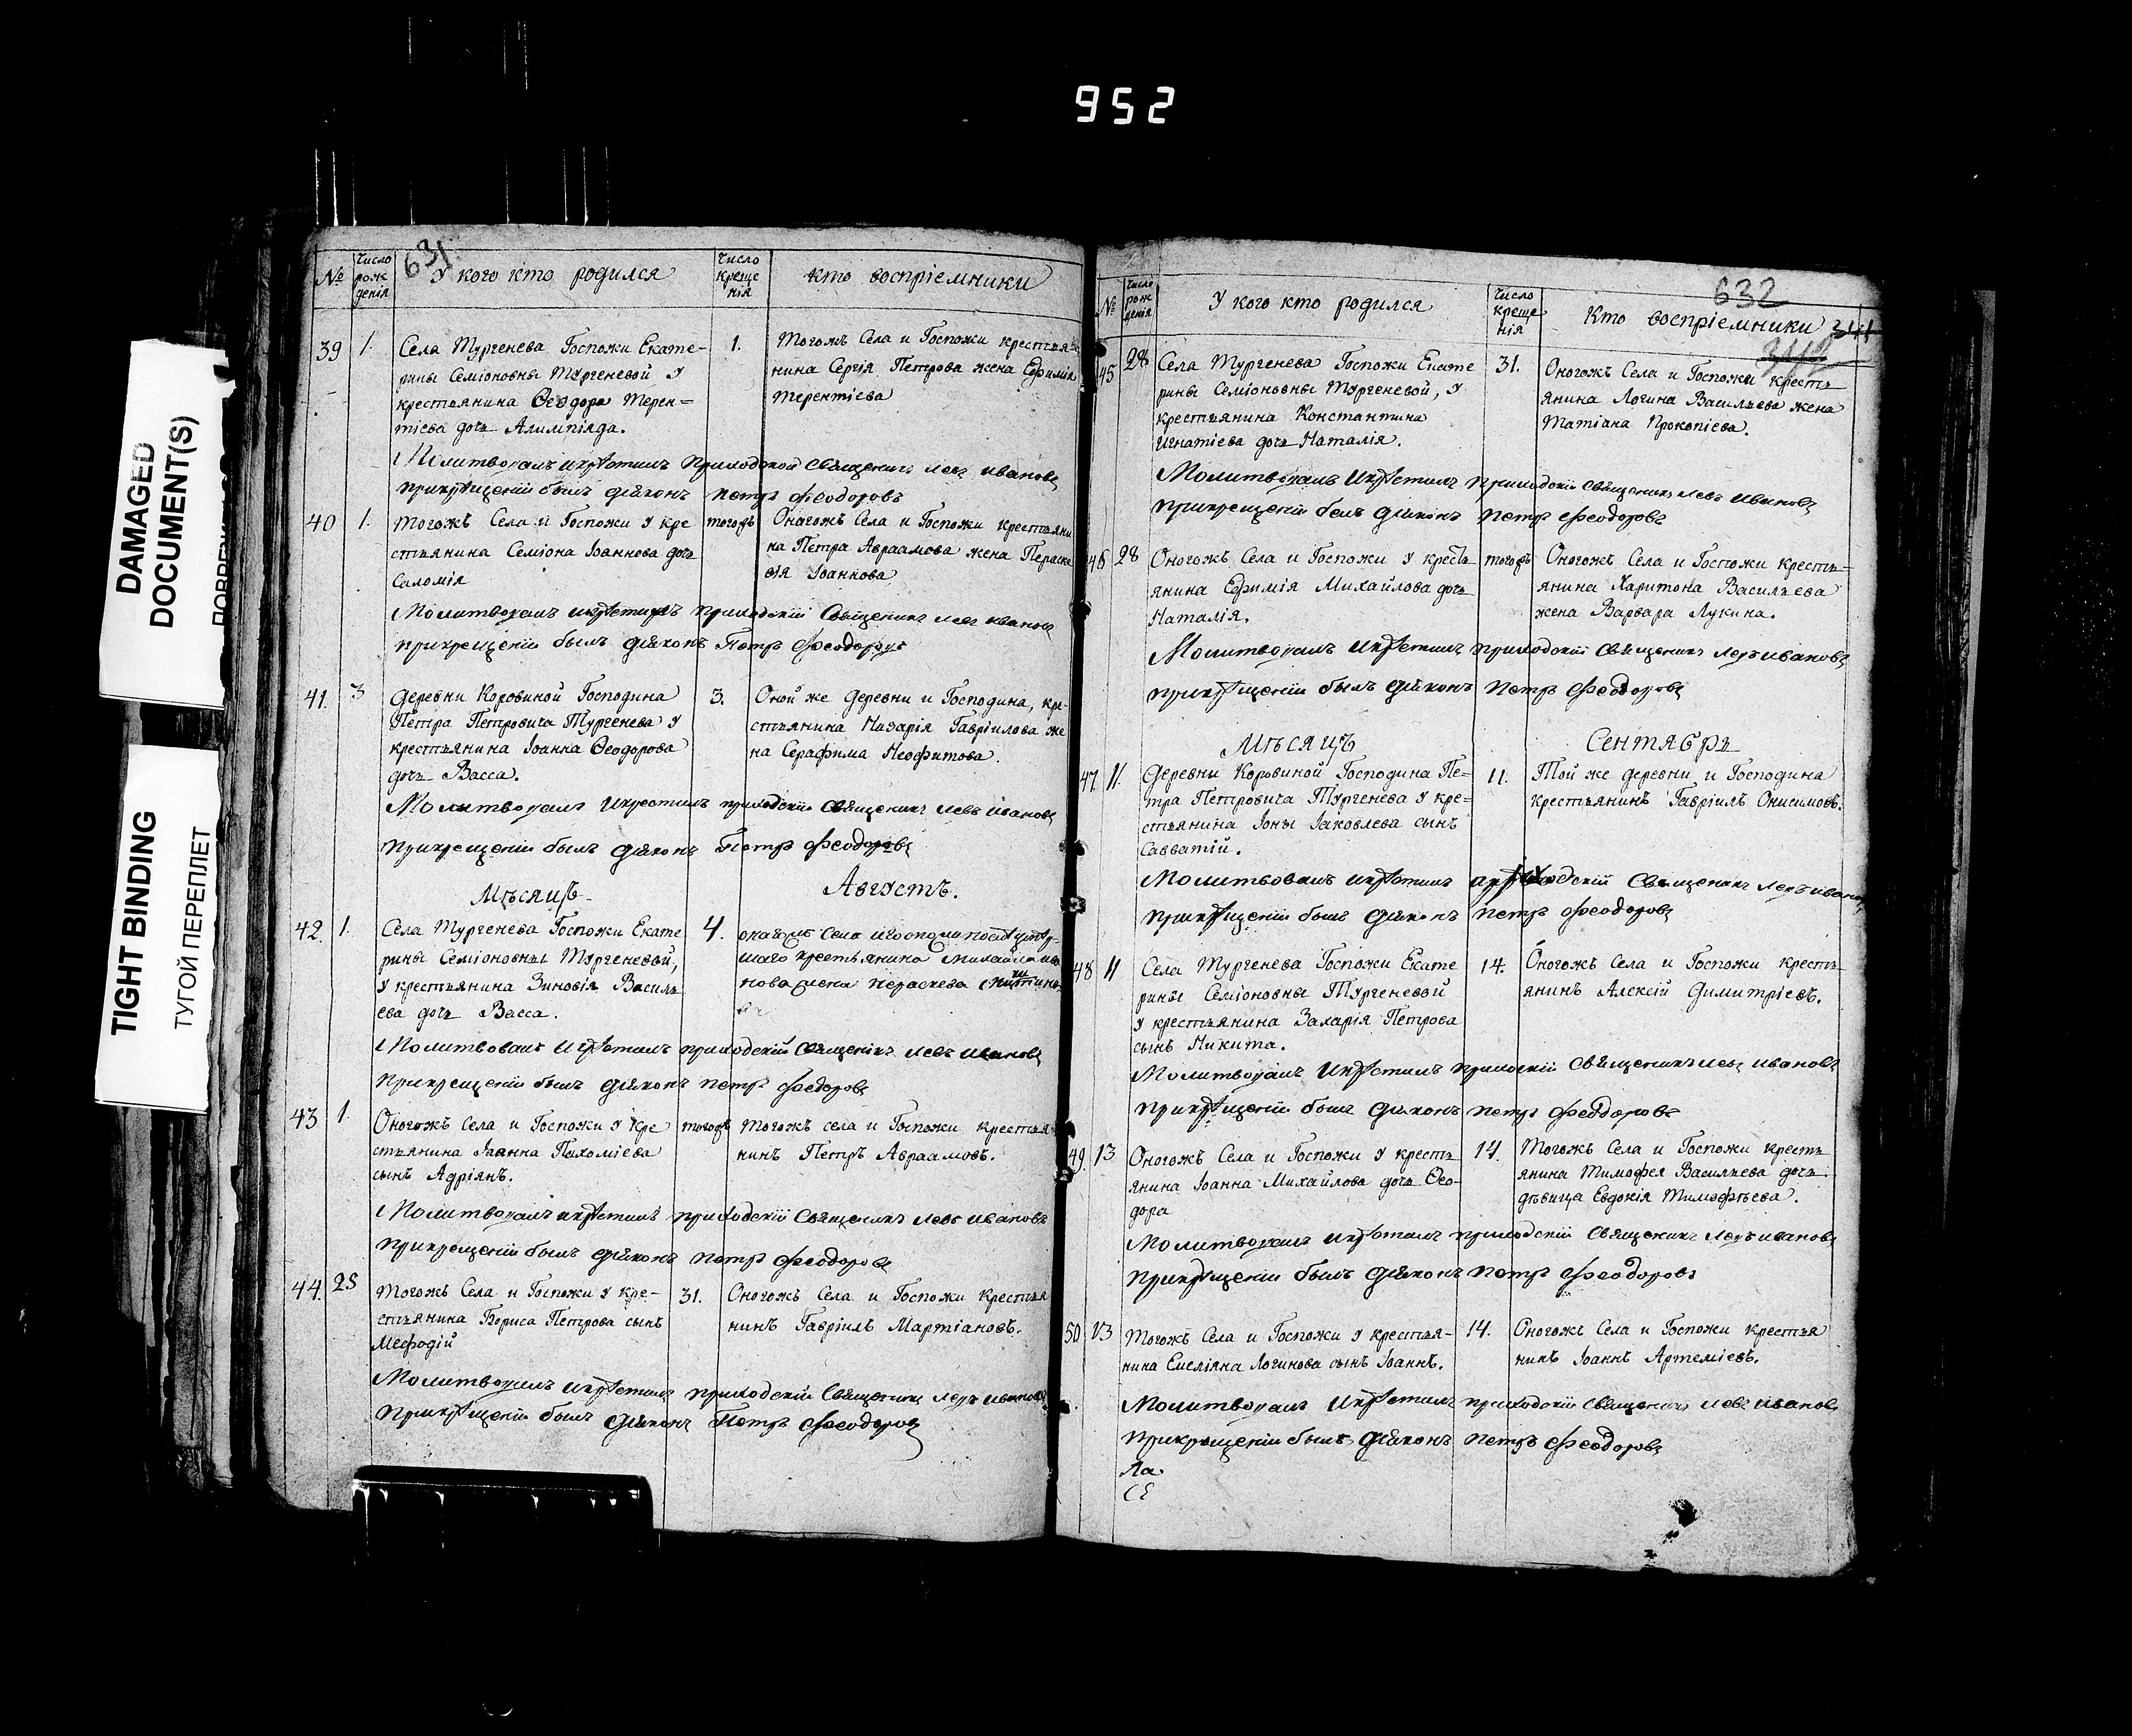 952
DAMAGED
DOCUMENT(S)
TIGHT BINDING
ТУГОЙ ПЕРЕПЛЕТ
631
№
Число рож денія
У кого кто родился
Число креще нія
Кто воспріемники
39
1.
Села Тургенева Госпожи Екате-
рины Семіоновны Тургеневой у
крестьянина Ѳеодора Терен=
тіева дочь Алимпіада.
1.
Тогожъ Села и Госпожи крестья
нина Сергія Петрова жена Ефимія
Терентіева
Молитвовалъ и крестилъ Приходской Священикъ Левъ Ивановъ
при крещеніи былъ діяконъ Петръ Феодоровъ
40
1.
Тогожъ Села и Госпожи у кре
стьянина Семіона Іоаннова дочь
Саломія
тогожъ
Оногожъ Села и Госпожи крестьяни
на Петра Авраамова жена Параске
вія Іоаннова
Молитвовалъ и крестилъ приходскій Священикъ Левъ Ивановъ
при крещеніи былъ діяконъ Петръ Феодоровъ
41.
3
Деревни Коровиной Господина
Петра Петровича Тургенева у
крестьянина Іоанна Ѳеодорова
дочь Васса.
3.
Оной же деревни и Господина, кре-
стьянина Назарія Гавріилова же
на Серафима Неофитова.
Молитвовалъ и крестилъ приходскіи Священикъ Левъ Ивановъ
при крещеніи былъ діяконъ Петръ Феодоровъ
Мѣсяцъ
Августъ.
42.
1.
Села Тургенева Госпожи Екате
рины Семіоновны Тургеневой,
у крестьянина Зиновія Василь
ева дочь Васса.
4.
шаго крестьянина Михайла Ива
нова жена
Молитвовалъ и крестилъ приходскій Священикъ Левъ Ивановъ
при крещеніи былъ діяконъ Петръ Федоровъ
43
1.
Оногожъ Села и Госпожи у кре
стьянина Іоанна Пахоміева
сынъ Адріянъ.
тогожъ
Тогожъ села и Госпожи крестья
нинъ Петръ Авраамовъ.
Молитвовалъ и крестилъ приходскій Священикъ Левъ Ивановъ
при крещеніи былъ діяконъ Петръ Феодоровъ
44.
25
Тогожъ Села и Госпожи у кре-
стьянина Бориса Петрова сынъ
Мефодій
31.
Оногожъ Села и Госпожи крестья
нинъ Гавріилъ Мартіановъ.
Молитвовалъ и крестилъ приходскій Священикъ Левъ Ивановъ
при крещеніи былъ діяконъ Петръ Феодоровъ
632
341
№
Число рож денія
У кого кто родился
Число креще нія
Кто воспріемники
45
28
Села Тургенева Госпожи Екате
рины Семіоновны Тургеневой, у
крестьянина Константина
Игнатіева дочь Наталія.
31.
Оногожъ Села и Госпожи кресть
янина Логина Васильева жена
Татіана Прокопіева.
Молитвовалъ и крестилъ приходскій Священикъ Левъ Ивановъ
при крещеніи былъ діяконъ Петръ Феодоровъ
46
28
Оногожъ Села и Госпожи у кресть
янина Ефимія Михайлова дочь
Наталія.
тогожъ
Оногожъ Села и Госпожи кресть=
янина Харитона Васильева
жена Варвара Лукина.
Молитвовалъ и крестилъ приходскій Священикъ Левъ Ивановъ
при крещеніи былъ діяконъ Петръ Феодоровъ
Мѣсяцъ
Сентябрь
47
11.
Деревни Коровиной Господина Пе=
тра Петровича Тургенева у кре=
стьянина Іоны Іаковлева сынъ
Савватій.
11.
Той же деревни и Господина
крестьянинъ Гавріилъ Онисимовъ.
Молитвовалъ и крестилъ приходскій Священикъ Левъ Ивановъ
при крещеніи былъ діяконъ Петръ Феодоровъ
48
11
Села Тургенева Госпожи Екате
рины Семіоновны Тургеневой
у крестьянина Захарія Петрова
сынъ Никита.
14.
Оногожъ Села и Госпожи кресть-
янинъ Алексій Димитріевъ.
Молитвовалъ и крестилъ Священикъ Левъ Ивановъ
при крещеніи былъ діяконъ Петръ Феодоровъ
49.
13
Оногожъ Села и Госпожи у кресть
янина Іоанна Михайлова дочь Ѳео-
дора
14.
Тогожъ Села и Госпожи кресть
янина Тимофея Васильева дочь
дѣвица Евдокія Тимофѣева.
Молитвовалъ и крестилъ приходскій Священикъ Левъ Ивановъ
при крещеніи былъ діяконъ Петръ Феодоровъ
50
13
Тогожъ Села и Госпожи у крестья-
нина Емеліяна Логинова сынъ Іоаннъ.
14.
Оногожъ Села и Госпожи крестья
нинъ Іоаннъ Артеміевъ.
Молитвовалъ и крестилъ приходскій Священикъ Левъ Ивановъ
при крещеніи былъ діяконъ Петръ Феодоровъ